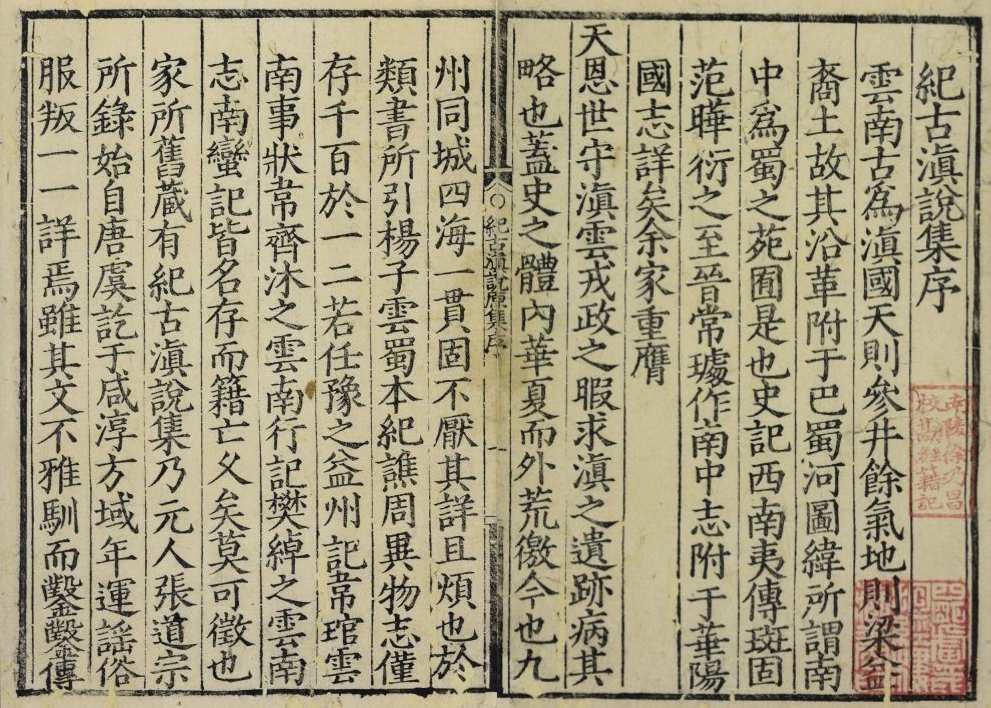 紀古滇說集序
雲南古為滇國天則參井餘氣地則梁益
裔土故其沿革附于巴蜀河圖緯所謂南
中爲蜀之苑囿是也史記西南夷傳班固
范曄衍之至晉常璩作南中志附于華陽
國志詳矣余家重膺
天恩世守滇雲戎政之暇求滇之遺跡病其
略也蓋史之體內華夏而外荒徼今也九
紀古滇說原集序
一
州同城四海一貫固不厭其詳且煩也於
類書所引楊子雲蜀本紀譙周異物志僅
存千百於一二若任豫之益州記韋琯雲
南事狀韋齊沐之雲南行記樊綽之雲南
志南蠻記皆名存而籍亡久矣莫可徵也
家所舊藏有紀古滇說集乃元人張道宗
所錄始自唐虞訖于咸淳方域年運謡俗
服叛一一詳焉雖其文不雅馴而鑿鑿傳
南陵徐乃昌
校勘經籍記